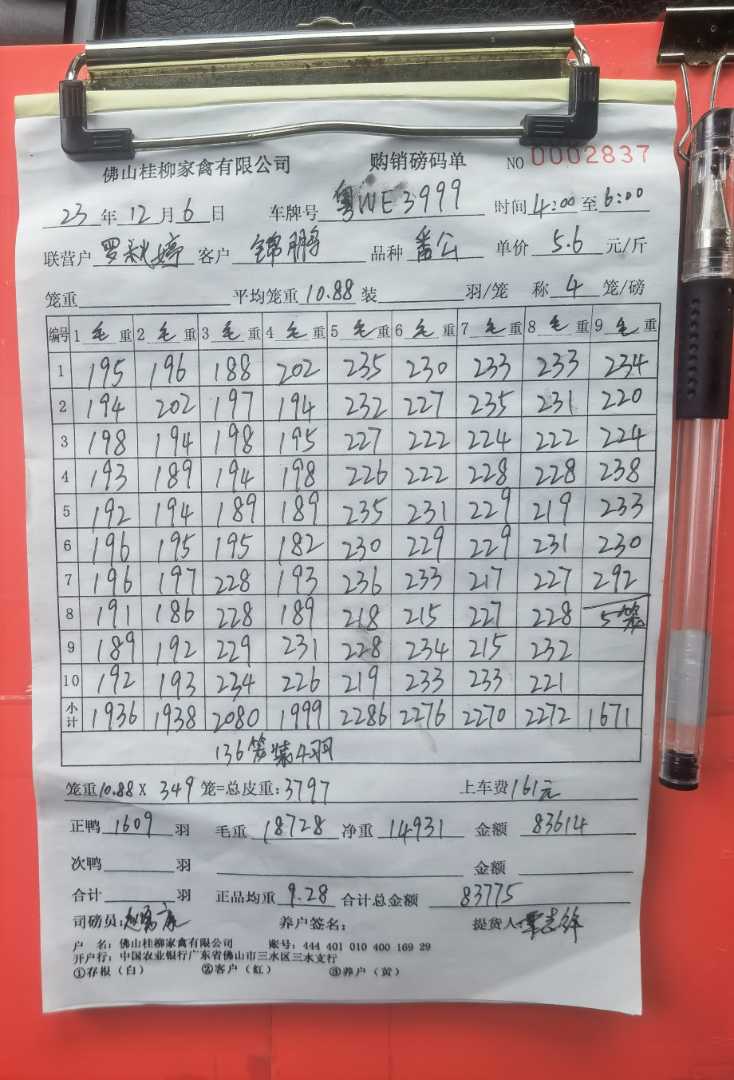 佛山桂柳家禽有限公司 购销磅码单 NO 0002837
23年12月6日 车牌号 粤WE3999 时间4:00至6:00
联营户 罗秋婷 客户 锦鹏 品种 番公 单价 5.6 元/斤
笼重 平均笼重10.88 装 羽/笼 称 4 笼/磅
编号 1 毛 重 2 毛 重 3 毛 重 4 毛 重 5 毛 重 6 毛 重 7 毛 重 8 毛 重 9 毛 重
1 195 196 188 202 235 230 233 233 234
2 194 202 197 194 232 227 235 231 220
3 198 194 198 195 227 222 224 222 224
4 193 189 194 198 226 222 228 228 238
5 192 194 189 189 235 231 229 219 233
6 196 195 195 182 230 229 229 231 230
7 196 197 228 193 236 233 217 227 292
8 191 186 228 189 218 215 227 228 5笼
9 189 192 229 231 228 234 215 232
10 192 193 234 226 219 233 233 221
小计 1936 1938 2080 1999 2286 2276 2270 2272 1671
136笼装4羽
笼重10.88 X 349 笼=总皮重:3797 上车费161元
正鸭 1609 羽 毛重 18728 净重 14931 金额 83614
次鸭 羽 金额
合计 羽 正品均重 9.28 合计总金额 83775
司磅员: 养户签名: 提货人:
户 名: 佛山桂柳家禽有限公司 账号: 444 401 010 400 169 29
开户行: 中国农业银行广东省佛山市三水区三水支行
①存根(白) ②客户(红) ③养户(黄)